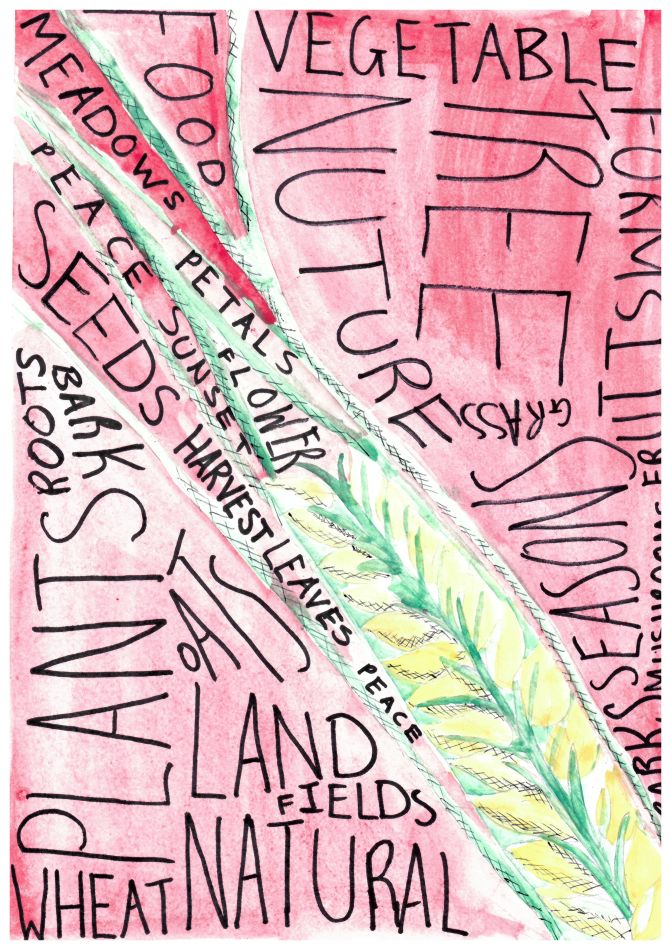 FOOD
VEGETABLE
MEADOWS
NUTURE
TREE
PEACE
SEEDS
PETALS
SUNSET
FLOWER
GRASS
ROOTS
BARK
HARVEST
LEAVES
PEACE
SEASONS
PARKS
MUSHROOMS
PLANTS
OATS
LAND
FIELDS
NATURAL
WHEAT